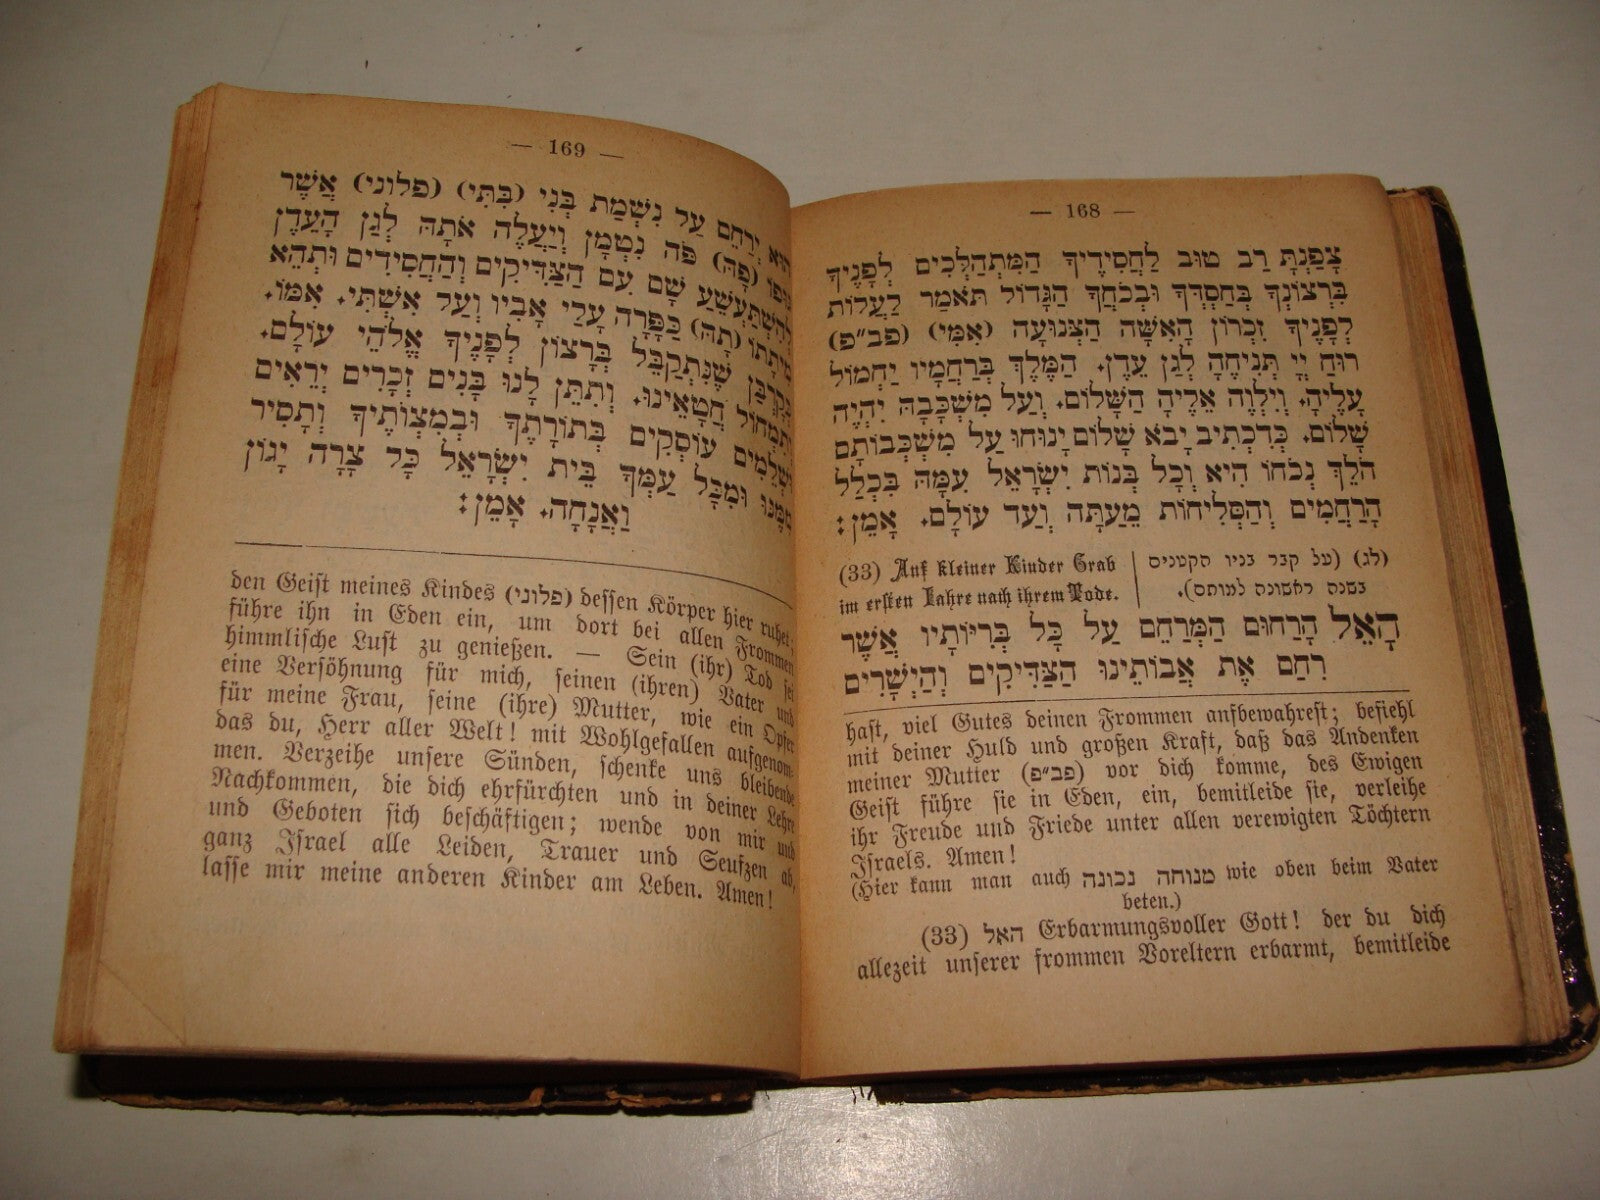 — 168 —
צָפַנְתָּ רַב טוּב לַחֲסִידֶיךָ הַמִּתְהַלְּכִים לְפָנֶיךָ
בִּרְצוֹנְךָ בְּחַסְדְּךָ וּבְכֹחֲךָ הַגָּדוֹל תֹּאמַר לַעֲלוֹת
לְפָנֶיךָ זִכְרוֹן הָאִשָּׁה הַצְּנוּעָה (אִמִּי) (פב״פ)
רוּחַ יְיָ תְּנִיחֶהָ לְגַן עֵדֶן. הַמֶּלֶךְ בְּרַחֲמָיו יַחְמוֹל
עָלֶיהָ. וְיִלְוֶה אֵלֶיהָ הַשָּׁלוֹם. וְעַל מִשְׁכָּבָהּ יִהְיֶה
שָׁלוֹם. כְּדִכְתִיב יָבֹא שָׁלוֹם יָנוּחוּ עַל מִשְׁכְּבוֹתָם
הֹלֵךְ נְכֹחוֹ הִיא וְכָל בְּנוֹת יִשְׂרָאֵל עִמָּהּ בִּכְלַל
הָרַחֲמִים וְהַסְּלִיחוֹת מֵעַתָּה וְעַד עוֹלָם. אָמֵן:
(לג) (על קבר בניו הקטנים
בשנה ראשונה למותם).
(33) Auf kleiner Kinder Grab
im ersten Jahre nach ihrem Tode.
הָאֵל הָרַחוּם הַמְּרַחֵם עַל כָּל בְּרִיּוֹתָיו אֲשֶׁר
רִחַם אֶת אֲבוֹתֵינוּ הַצַּדִּיקִים וְהַיְשָׁרִים
hast, viel Gutes deinen Frommen aufbewahrest; befiehl
mit deiner Huld und großen Kraft, daß das Andenken
meiner Mutter (פב״פ) vor dich komme, des Ewigen
Geist führe sie in Eden, ein, bemitleide sie, verleihe
ihr Freude und Friede unter allen verewigten Töchtern
Israels. Amen!
(Hier kann man auch מנוחה נכונה wie oben beim Vater
beten.)
(33) האל Erbarmungsvoller Gott! der du dich
allezeit unserer frommen Voreltern erbarmt, bemitleide
— 169 —
הוּא יְרַחֵם עַל נִשְׁמַת בְּנִי (בִּתִּי) (פלוני) אֲשֶׁר
גּוּפוֹ (פָהּ) פֹּה נִטְמַן וְיַעֲלֶה אֹתָהּ לְגַן הָעֵדֶן
לְהִשְׁתַּעֲשֵׁעַ שָׁם עִם הַצַּדִּיקִים וְהַחֲסִידִים וּתְהֵא
מִיתָתוֹ (תָהּ) כַּפָּרָה עָלַי אָבִיו וְעַל אִשְׁתִּי. אִמּוֹ.
כְּקָרְבָּן שֶׁנִּתְקַבֵּל בְּרָצוֹן לְפָנֶיךָ אֱלֹהֵי עוֹלָם.
וְתִמְחוֹל חֲטָאֵינוּ. וְתִתֵּן לָנוּ בָּנִים זְכָרִים יְרֵאִים
וּשְׁלֵמִים עוֹסְקִים בְּתוֹרָתֶךָ וּבְמִצְוֹתֶיךָ וְתָסִיר
מִמֶּנּוּ וּמִכָּל עַמְּךָ בֵּית יִשְׂרָאֵל כָּל צָרָה יָגוֹן
וַאֲנָחָה. אָמֵן:
den Geist meines Kindes (פלוני) dessen Körper hier ruhet;
führe ihn in Eden ein, um dort bei allen Frommen
himmlische Lust zu genießen. — Sein (ihr) Tod sei
eine Versöhnung für mich, seinen (ihren) Vater und
für meine Frau, seine (ihre) Mutter, wie ein Opfer
das du, Herr aller Welt! mit Wohlgefallen aufgenom-
men. Verzeihe unsere Sünden, schenke uns bleibende
Nachkommen, die dich ehrfürchten und in deiner Lehre
und Geboten sich beschäftigen; wende von mir und
ganz Israel alle Leiden, Trauer und Seufzen ab,
lasse mir meine anderen Kinder am Leben. Amen!